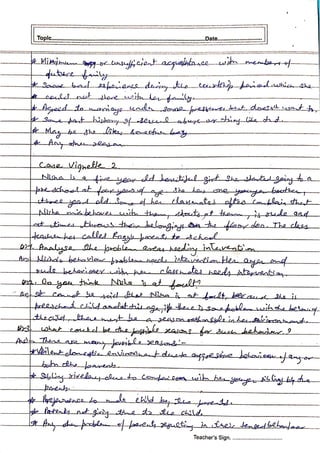 Topic Date
* Minimum or insufficient acquaintance with members of
future family
* Some bad experience during the courtship period which she
could not share with her family.
* Agreed to marriage under some pressure but doesn't want to.
* Some past history of sexual abuse or thing like that.
* May be she likes someother boy
* Any other reason
Case Vignette 2
Nisha is a five year old beautiful girl. She started going to a
preschool at four years of age. She has one younger brother,
three year old. Some of her classmates often complain that
Nisha misbehaves with them, shouts at them, is rude and
at times throws their belongings on the floor. The class
teacher has called parents to school
Analyse the problem areas needing intervention
Nisha's behaviour problem needs intervention. Her anger and
rude behaviour with her classmates needs intervention.
Do you think Nisha is at fault?
It cannot be said that Nisha is at fault, because she is
preschool child and at this age, if there is some problem with the behaviour of
the child, there must be a reason responsible in her environment.
What could be the possible reasons for such behaviour?
There are many possible reasons:-
* Violent domestic environment due to aggressive behaviour of any or
both the parents.
* Sibling rivalry, due to comparison with her younger sibling by the
parents.
* Preference to male child by the parents.
* Parents not giving time to the child.
* Any other problem of parents resulting in their tensed behaviour
Teacher's Sign.